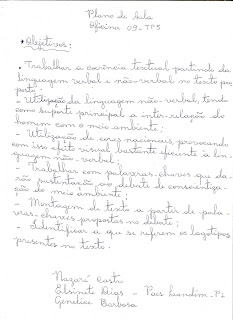 Plano de Aula
Oficina 09 - TP5
• Objetivos:
• Trabalhar a coerência textual partindo da
linguagem verbal e não-verbal no texto pro
posto.
- Utilização da linguagem não-verbal, tendo
como suporte principal a inter-relação do
homem com o meio ambiente;
- Utilização de cores nacionais, provocando
com isso efeito visual bastante eficiente à lin-
guagem não-verbal;
- Trabalhar com palavras-chaves que da-
rão sustentação ao debate de conscientiza-
ção do meio ambiente;
- Montagem do texto a partir de pala-
vras-chaves propostas no debate;
- Identificar a que se referem os logotipos
presentes no texto.
Nazaré Castro
Elsinete Dias - Paes Landim - PI
Genelice Barbosa